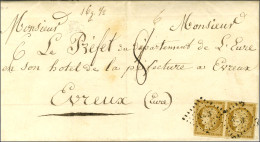 Monsieur Monsieur
Le Préfet du Département de L'Eure
en son hotel de la préfecture a Evreux
Evreux
(Eure)